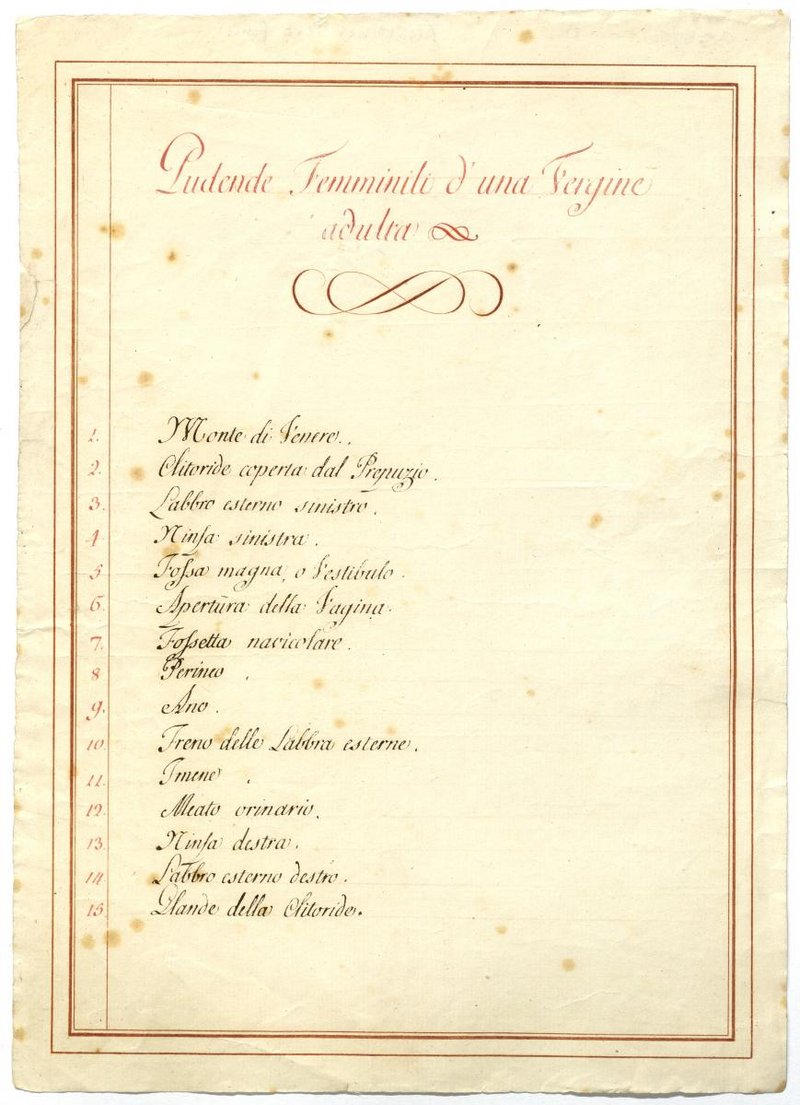 Pudende Femminili d'una Vergine
adulta
1. Monte di Venere.
2. Clitoride coperta dal Prepuzio.
3. Labbro esterno sinistro.
4 Ninfa sinistra.
5 Fossa magna, o Vestibulo.
6. Apertura della Vagina.
7. Fossetta navicolare.
8 Perineo.
9. Ano.
10 Freno delle Labbra esterne.
11. Imene.
12. Meato orinario.
13. Ninfa destra.
14 Labbro esterno destro.
15 Glande della Clitoride.